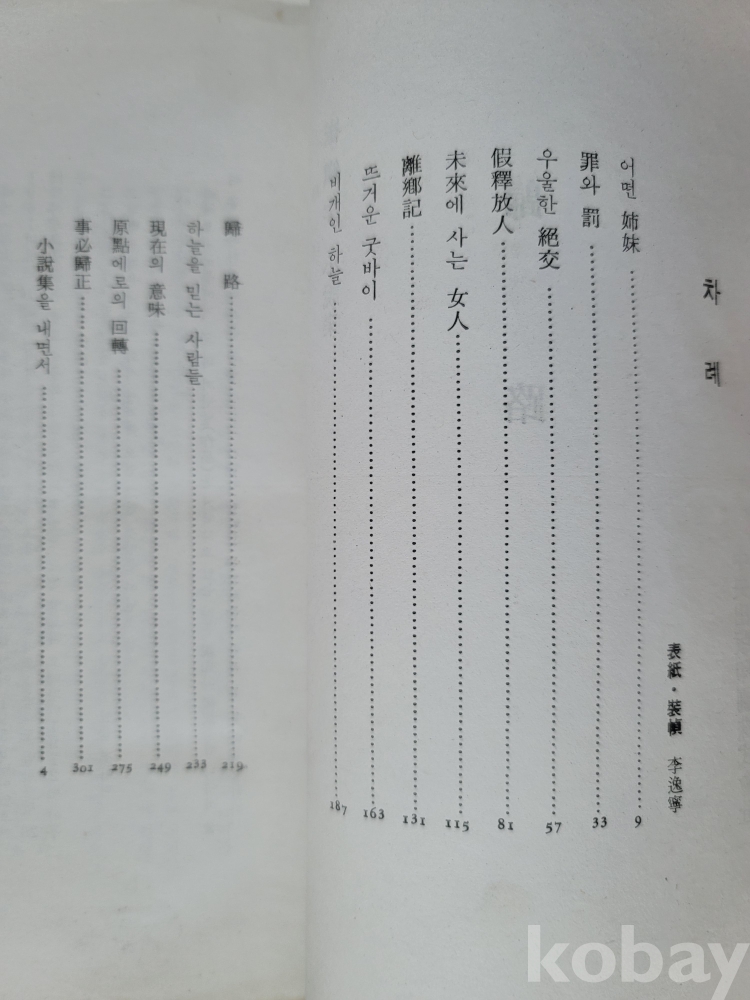 차 레
表紙·裝幀 李逸寧
어떤 姉妹 9
罪와 罰 33
우울한 絕交 57
假釋放人 81
未來에 사는 女人 115
離鄕記 131
뜨거운 굿바이 163
비개인 하늘 187
歸 路 219
하늘을 믿는 사람들 233
現在의 意味 249
原點에로의 回轉 275
事必歸正 301
小說集을 내면서 4
kobay